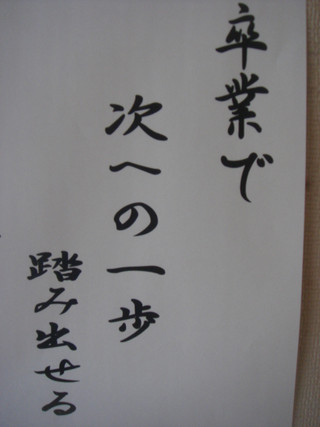 卒業で
次への一歩
踏み出せる